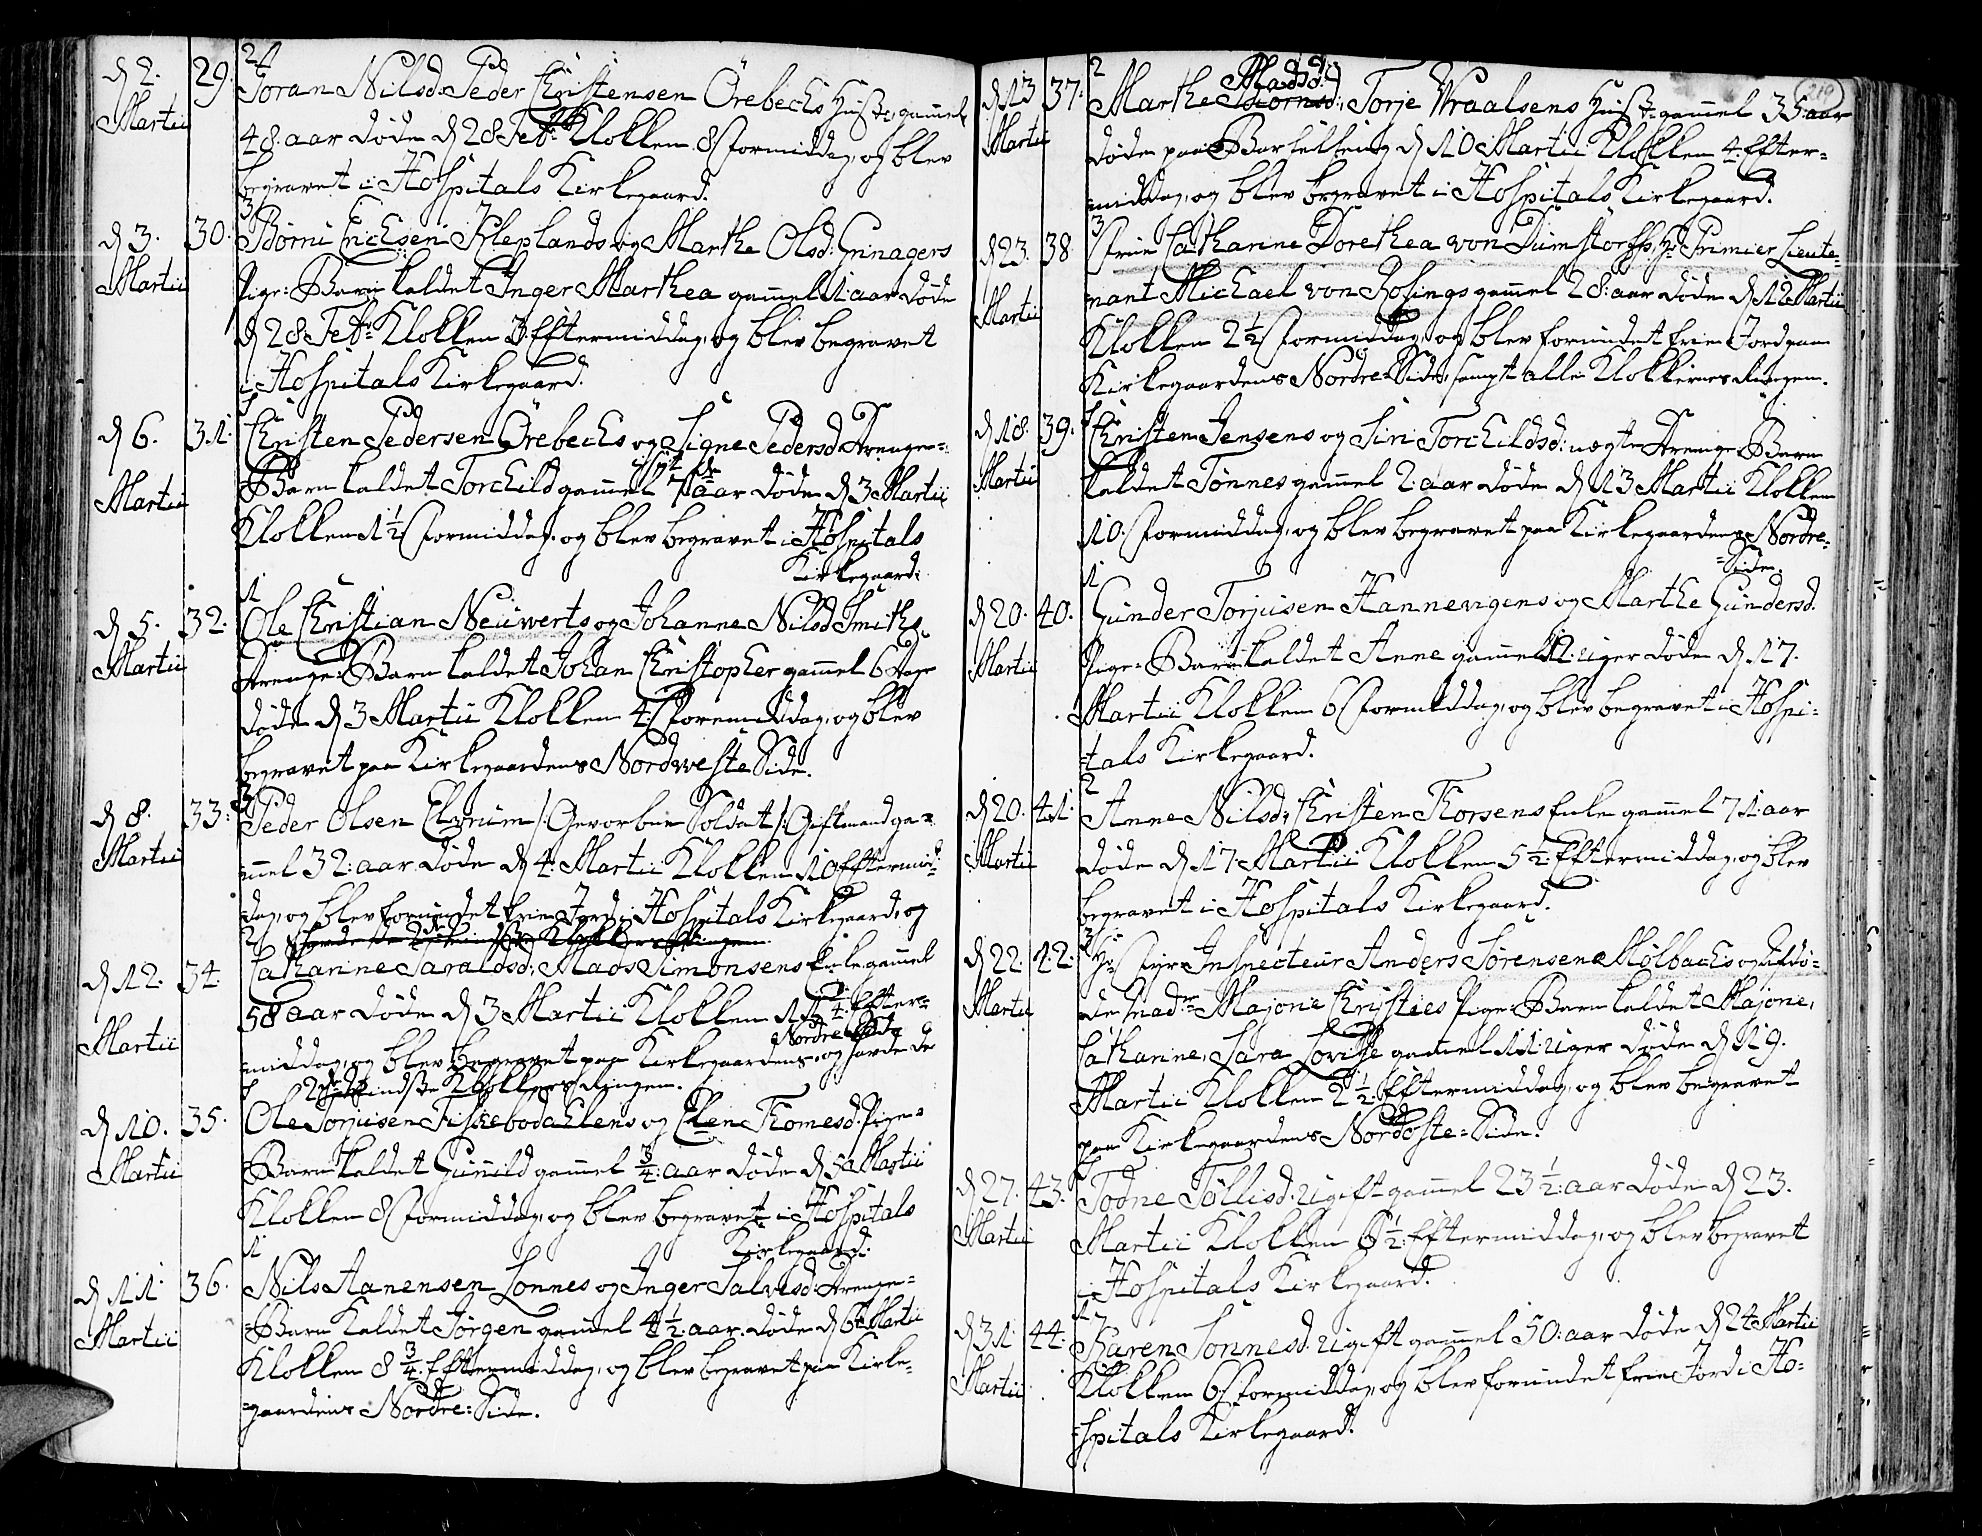 d 2. Martii 29. Joran Nilsd: Peder Christensen Örebechs Hust: gamel
48 aar døde d 28 Feb: Klokken 8 Formiddag, og blev
begravet i Hospitals Kirkegaard.
d 3. Martii 30. Børni Erichsen Kleplands og Marthe Olsd: Grinagers
Pige-Barn kaldet Inger Marthea gamel 1: aar døde
d 28 Feb: Klokken 3 Eftermiddag, og blev begravet
i Hospitals Kirkegaard.
d 6. Martii 31. Christen Pedersen Örebechs og Signe Pedersd: Drenge-
Barn kaldet Torchild gamel 7 aar døde d 3 Martii
Klokken 1 1/2 Formiddag, og blev begravet i Hospitals
Kirkegaard.
d 5. Martii 32. Ole Christian Neuwerts og Johanne Nilsd Smiths
Drenge-Barn kaldet Johan Christopher gamel 6 Dage
døde d 3 Martii Klokken 4 Formiddag, og blev
begravet paa Kirkegaardens Nordweste Side.
d 8. Martii 33. Peder Olsen Elvrum /: Gevorben Soldat /: Giftmand ga-
mel 32: aar døde d 4. Martii Klokken 10 Eftermid-
dag, og blev forundet frie Jord i Hospitals Kirkegaard, og
d 12. Martii 34. Catharine Saraldsd: Mads Simonsens Enke gamel
58 aar døde d 3 Martii Klokken 11 1/2 Efter-
middag, og blev begravet paa Kirkegaardens Nordre Side, og havde de
2de mindste Klokkers Ringen.
d 10. Martii 35. Ole Torjusen Fiskebodælens og Elen Thomesd. Pige-
Barn kaldet Gunild gamel 3/4: aar døde d 5 Martii
Klokken 8 Formiddag, og blev begravet i Hospitals
Kirkegaard.
d 11. Martii 36. Nils Aanensen Lonnes og Inger Salvesd: Drenge-
-Barn Kaldet Jørgen gamel 4 1/2: aar. døde d 6 Martii
Klokken 8 3/4. Eftermiddag, og blev begravet paa Kirke-
gaardens Nordre-Side.
219
d 13 Martii 37. Marthe Madsd: Torje Wraalsens Hust: gamel 35: aar
døde paa d 10 Martii Klokken 4. Efter-
middag, og blev begravet i Hospitals Kirkegaard.
d 23. Martii 38. Frue Catharine Dorethea von Dumstorffs, Hr Primier Lieute-
nant Michael von Rosings gamel 28: aar døde d 12 Martii
Klokken 2 1/2 Formiddag, og blev forundet frie Jord paa
Kirkegaardens Nordre-Side, sampt alle Klokkernes Ringen.
d 18. Martii 39. Christen Jensens og Siri Torchildsd: uægte Drenge-Barn
kaldet Tønnes gamel 2: aar døde d 13 Martii Klokken
10. Formiddag, og blev begravet paa Kirkegaardens Nordre-
-Side.
d 20. Martii 40. Gunder Torjusen Hannevigens og Marthe Gundersd.
Pige-Barn kaldet Anne gamel 12: uger døde d 17.
Martii Klokken 6 Formiddag, og blev begravet i Hospi-
-tals Kirkegaard.
d 20. Martii 41. Anne Nilsd, Christen Thorsens Enke gamel 71: aar
døde d 17 Martii Klokken 5 1/2: Eftermiddag, og blev
begravet i Hospitals Kirkegaard.
d 22. Martii 42. Hr Fyr-Inspecteur Anders Sørensen Mølbachs og Afdø-
de Mad: Majorie Christies Pige-Barn kaldet Majorie,
Catharine, Sara Lovisse gamel 11: uger døde d 19.
Martii Klokken 2 1/2: Eftermiddag, og blev begravet
paa Kirkegaardens Nordøste-Side.
d 27. Martii 43. Todne Tøllisd: Ugift gamel 23 1/2: aar døde d 23.
Martii Klokken 6 1/2: Eftermiddag, og blev begravet
i Hospitals Kirkegaard.
d 31. Martii 44. Karen Tonnesd: Ugift gamel 50: aar døde d 24 Martii
Klokken 6 Formiddag, og blev forundet frie Jord i Ho-
-spitals Kirkegaard.